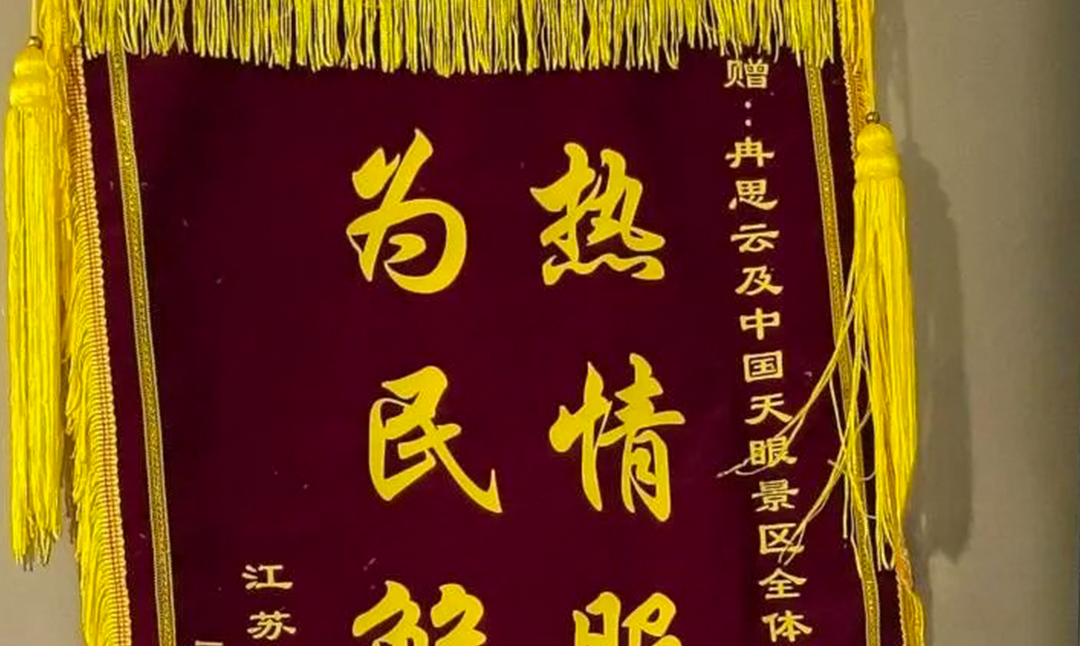 赠：冉思云及中国天眼景区全体
热情服
为民解
江苏